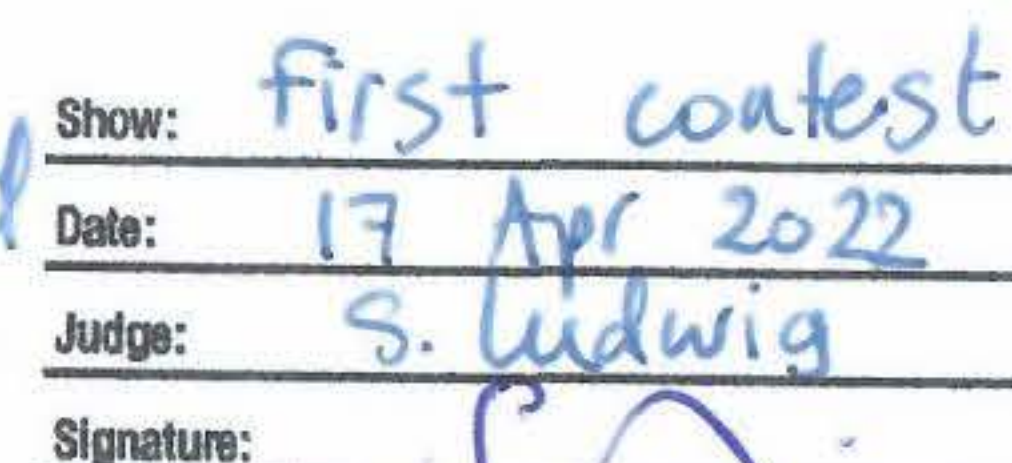 Show: First contest
Date: 17 Apr 2022
Judge: S. Ludwig
Signature: